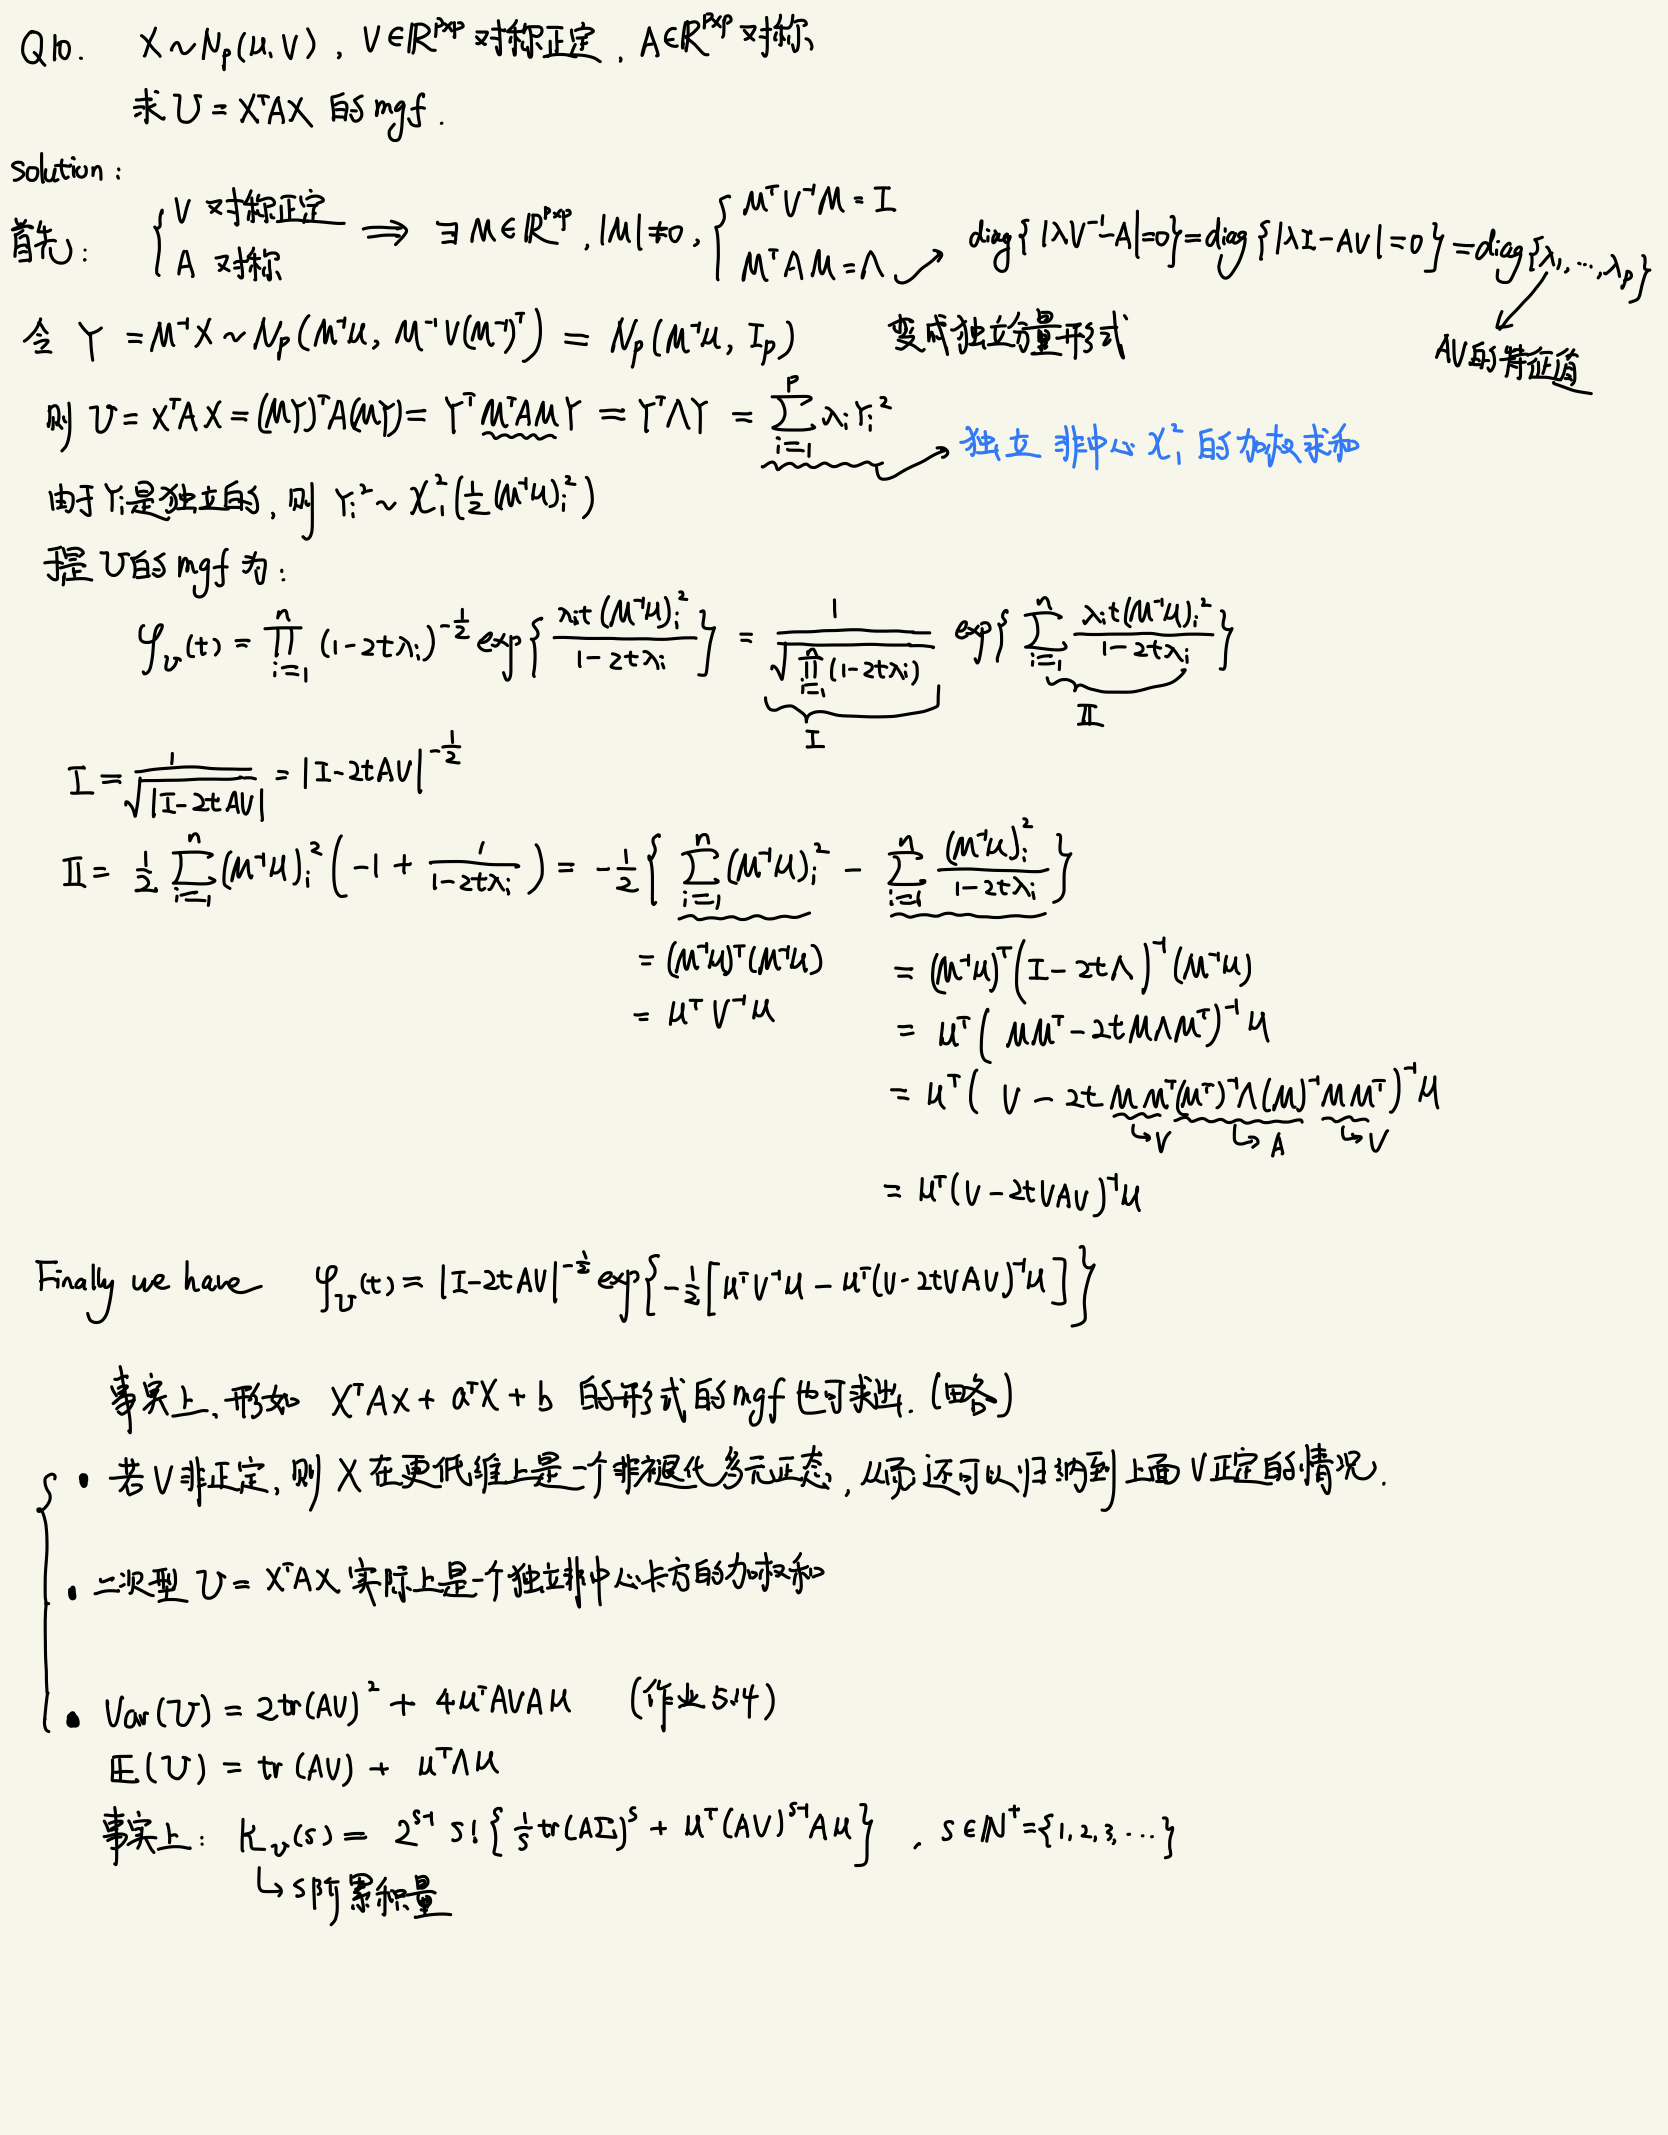 Q10. X ~ N_p(μ, V), V∈ℝ^{p×p} 对称正定, A∈ℝ^{p×p} 对称
求 U = XᵀAX 的 mgf.
solution:
首先: { V 对称正定 A 对称 ⟹ ∃ M∈ℝ^{p×p}, |M|≠0, { MᵀV⁻¹M = I MᵀAM = Λ → diag{|λV⁻¹-A|=0} = diag{|λI-AV|=0} = diag{λ₁, ..., λ_p}
AV的特征值
令 Y = M⁻¹X ~ N_p(M⁻¹μ, M⁻¹V(M⁻¹)ᵀ) = N_p(M⁻¹μ, I_p) 变成独立分量形式
则 U = XᵀAX = (MY)ᵀA(MY) = YᵀMᵀAMY = YᵀΛY = ∑_{i=1}^{p} λᵢYᵢ² → 独立非中心χ₁²的加权求和
由于Yᵢ是独立的, 则 Yᵢ² ~ χ₁²(½(M⁻¹μ)ᵢ²)
于是 U的 mgf 为:
φ_U(t) = ∏_{i=1}^{n} (1-2tλᵢ)^{-1/2} exp{ λᵢt(M⁻¹μ)ᵢ² / (1-2tλᵢ) } = 1/√(∏_{i=1}^{n}(1-2tλᵢ)) exp{ ∑_{i=1}^{n} λᵢt(M⁻¹μ)ᵢ² / (1-2tλᵢ) }
I II
I = 1/√|I-2tAV| = |I-2tAV|^{-1/2}
II = ½ ∑_{i=1}^{n} (M⁻¹μ)ᵢ² (-1 + 1/(1-2tλᵢ)) = -½ { ∑_{i=1}^{n} (M⁻¹μ)ᵢ² - ∑_{i=1}^{n} (M⁻¹μ)ᵢ²/(1-2tλᵢ) }
= (M⁻¹μ)ᵀ(M⁻¹μ)
= μᵀV⁻¹μ
= (M⁻¹μ)ᵀ(I-2tΛ)⁻¹(M⁻¹μ)
= μᵀ(MMᵀ-2tMΛMᵀ)⁻¹μ
= μᵀ(V - 2t MMᵀ(Mᵀ)⁻¹Λ(M)⁻¹MMᵀ)⁻¹μ
↳V ↳A ↳V
= μᵀ(V-2tVAV)⁻¹μ
Finally we have φ_U(t) = |I-2tAV|^{-1/2} exp{ -½[μᵀV⁻¹μ - μᵀ(V-2tVAV)⁻¹μ] }
事实上, 形如 XᵀAX + aᵀX + b 的形式的mgf也可求出. (略)
• 若V非正定, 则 X 在更低维上是一个非退化多元正态, 从而还可以归纳到上面V正定的情况.
• 二次型 U = XᵀAX 实际上是一个独立非中心卡方的加权和
• Var(U) = 2tr(AV)² + 4μᵀAVAμ (作业5.14)
𝔼(U) = tr(AV) + μᵀΛμ
事实上: K_U(s) = 2^{s-1} s! { 1/s tr(AΣ)^s + μᵀ(AV)^{s-1}Aμ }, s∈ℕ⁺={1,2,3,...}
↳s阶累积量